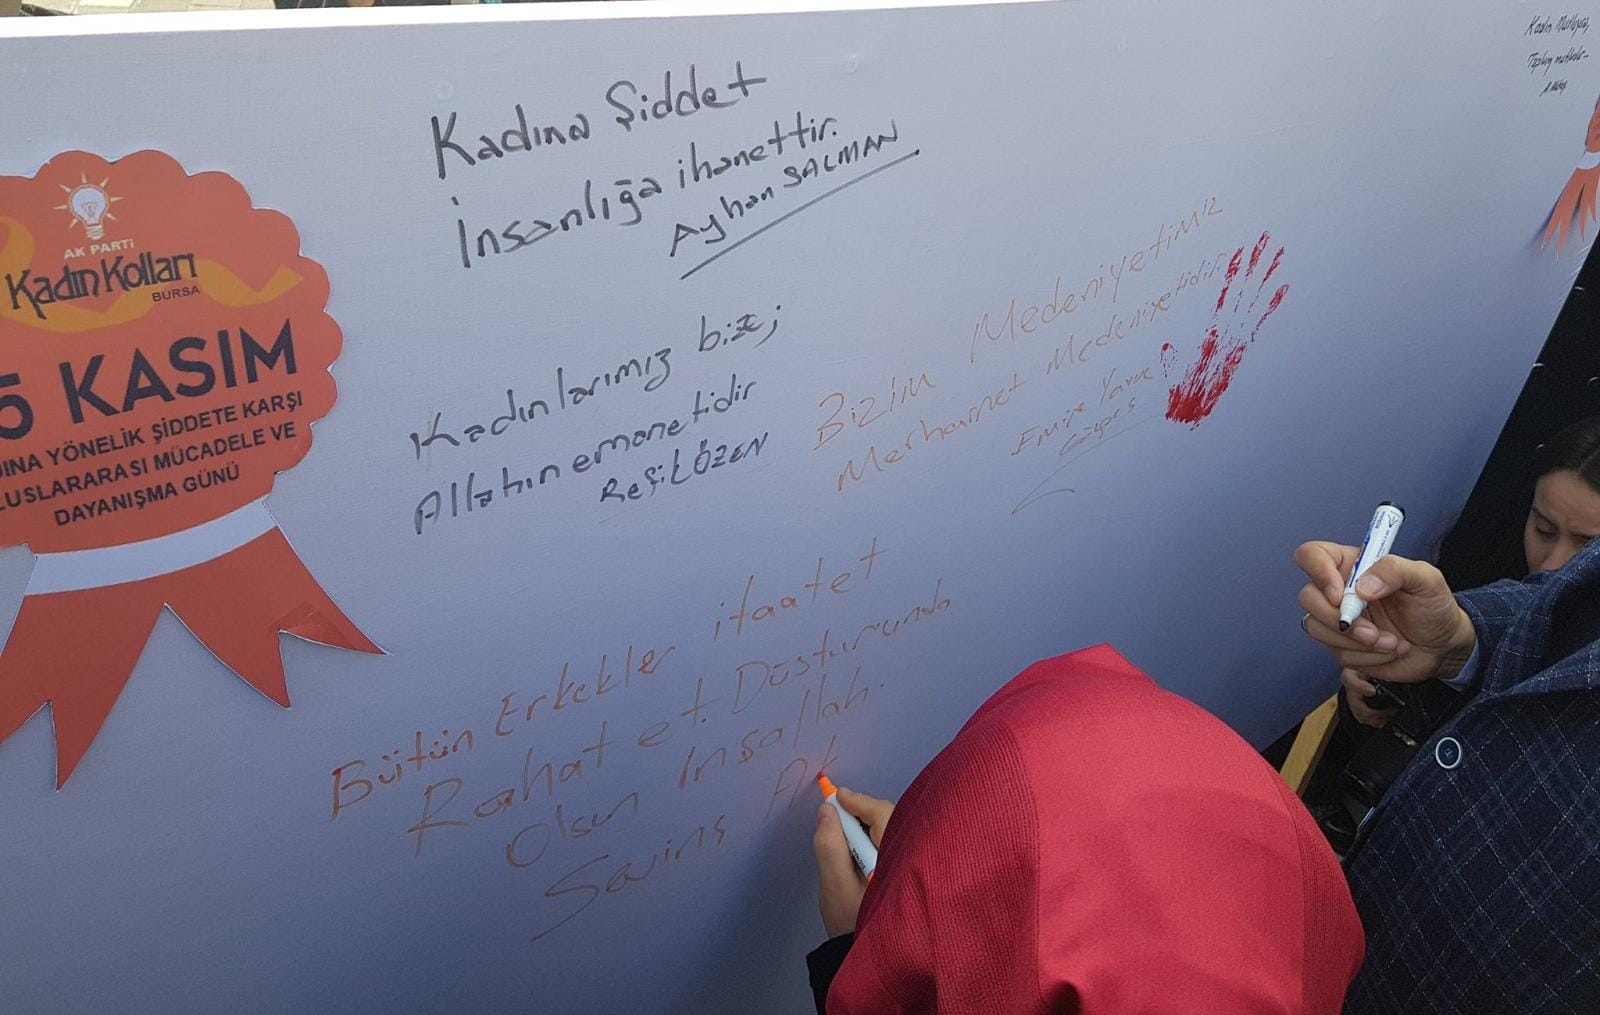 AK PARTİ
Kadın Kolları
BURSA
5 KASIM
DINA YÖNELİK ŞİDDETE KARŞI
LUSLARARASI MÜCADELE VE
DAYANIŞMA GÜNÜ
Kadına Şiddet
İnsanlığa ihanettir.
Ayhan SALMAN
Kadınlarımız bize;
Allahın emanetidir
Refik ÖZEN
Bizim Medeniyetimiz
Merhamet Medeniyetidir.
Emine Yavuz
Gözgeç
Bütün Erkekler itaatet
Rahat et. Düsturunda
Olsun İnşallah.
Sevinç Ak
Kadın Mutluysa,
Toplum mutludur